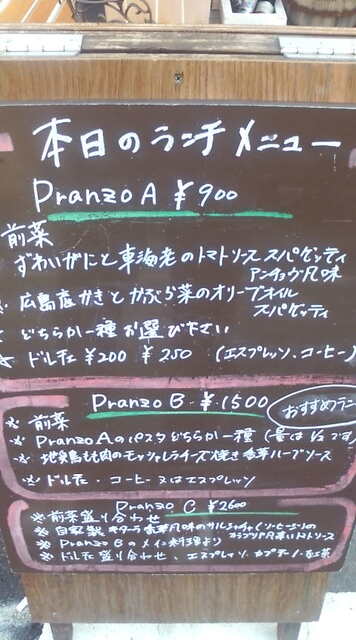 本日のランチメニュー
Pranzo A ¥900
前菜
ずわいがにと車海老のトマトソース スパゲッティ
アンチョヴィ風味
※ 広島産かきとかぶら菜のオリーブオイル
スパゲッティ
どちらか一種お選び下さい
¥200 ¥250 (エスプレッソ、コーヒー)
Pranzo B ¥1500
おすすめラン
※ 前菜
※ Pranzo Aのパスタどちらか一種 (量は1/2です
※ 地鶏もも肉のモッツァレラチーズ焼き 香草ハーブソース
※ ドルチェ・コーヒー又はエスプレッソ
Pranzo C ¥2600
※ 前菜盛り合わせ
※ 自家製 キターラ 風味のサルシッチャ(ソーセージ)の
トマトソース
※ Pranzo Bのメイン料理より
※ ドルチェ盛り合わせ、エスプレッソ、カプチーノ、紅茶